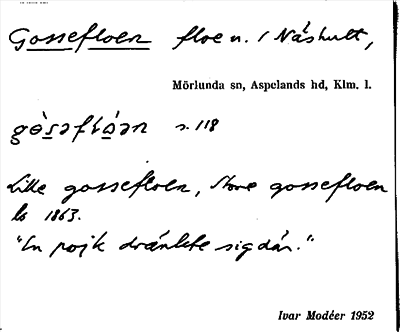 Gossefloen floe n. / Näshult,
Mörlunda sn, Aspelands hd, Klm. l.
s. 118
Lille gossefloen, Store gossefloen
ls 1863.
"En pojk dränkte sig där."
Ivar Modéer 1952